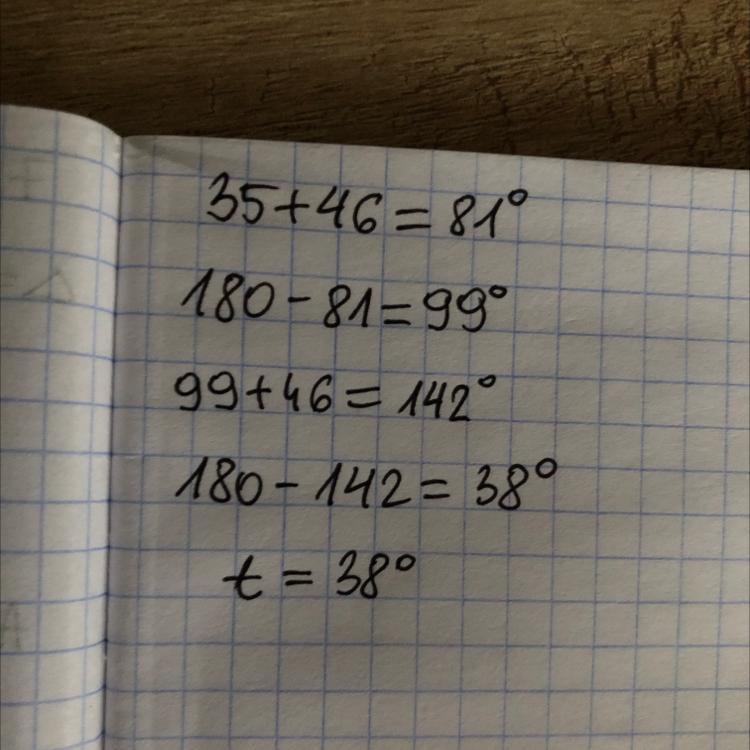 35+46=81°
180-81=99°
99+46=142°
180-142=38°
t=38°